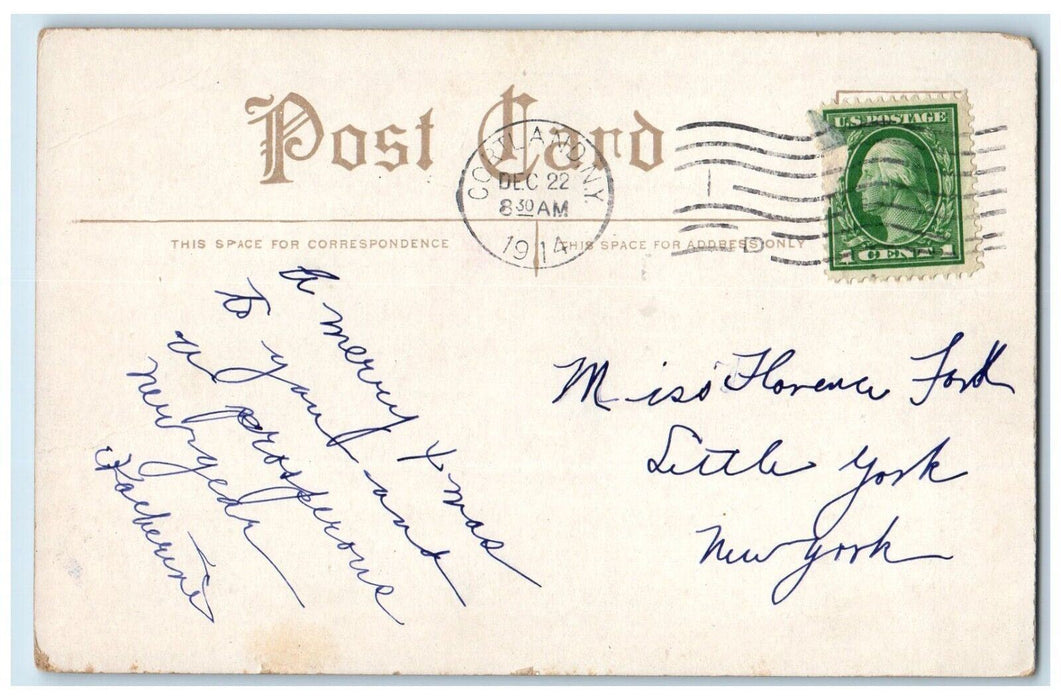 Post Card
CORTLAND N.Y.
DEC 22
8 30 AM
1914
D
U.S. POSTAGE
1 CENT 1
THIS SPACE FOR CORRESPONDENCE
THIS SPACE FOR ADDRESS ONLY
a merry Xmas
to you and
a prosperous
new year
Katherine
Miss Florence Ford
Little York
New York